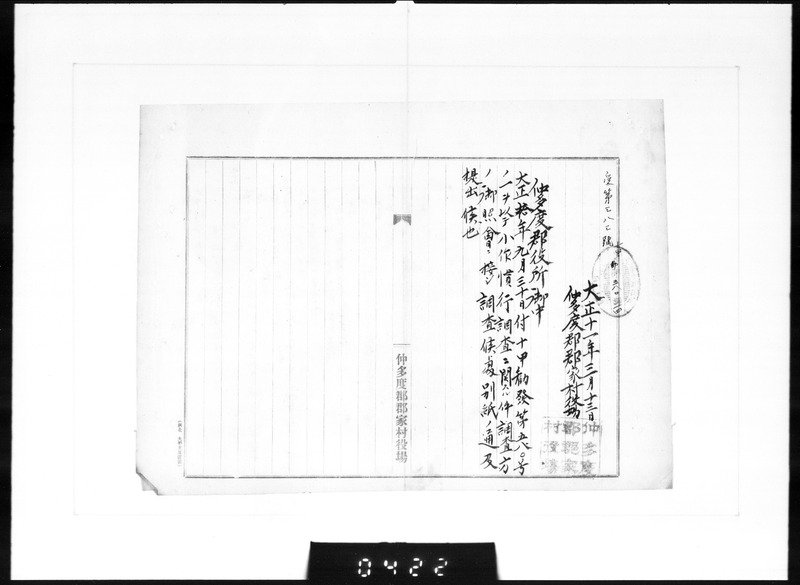 発第七八二號
大正十一年三月十三日
仲多度郡郡家村役場
仲多度郡役所御中
大正拾年九月三十日付十甲勧發第五八〇号
ノ一ヲ以テ小作慣行調査ニ関スル件調査方
ノ御照會ニ接シ調査候處別紙ノ通及
提出候也
仲多度郡郡家村役場
仲多度
郡郡家
村役場
0422